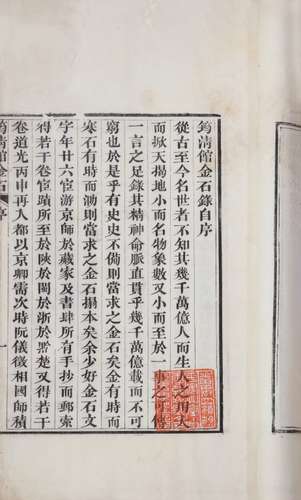 筠清館金石錄自序
從古至今名世者不知其幾千萬億人而生人之用大
而掀天揚地小而名物象數又小而至於一事之可傳
一言之足錄其精神命脈直貫乎幾千萬億載而不可
窮也於是乎有史史不備則當求之金石矣金有時而
寒石有時而泐則當求之金石搨本矣余少好金石文
字年廿六宦游京師於藏家及書肆所有手抄而郵索
得若干卷宦蹟所至於陝於閩於浙於黔楚又得若干
卷道光丙申再入都以京卿需次時阮儀徵相國師積
筠清館金石
序
一